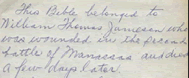 This Bible belonged to
William Thomas Jameson who
was wounded in the second
battle of Manassas and died
a few days later.